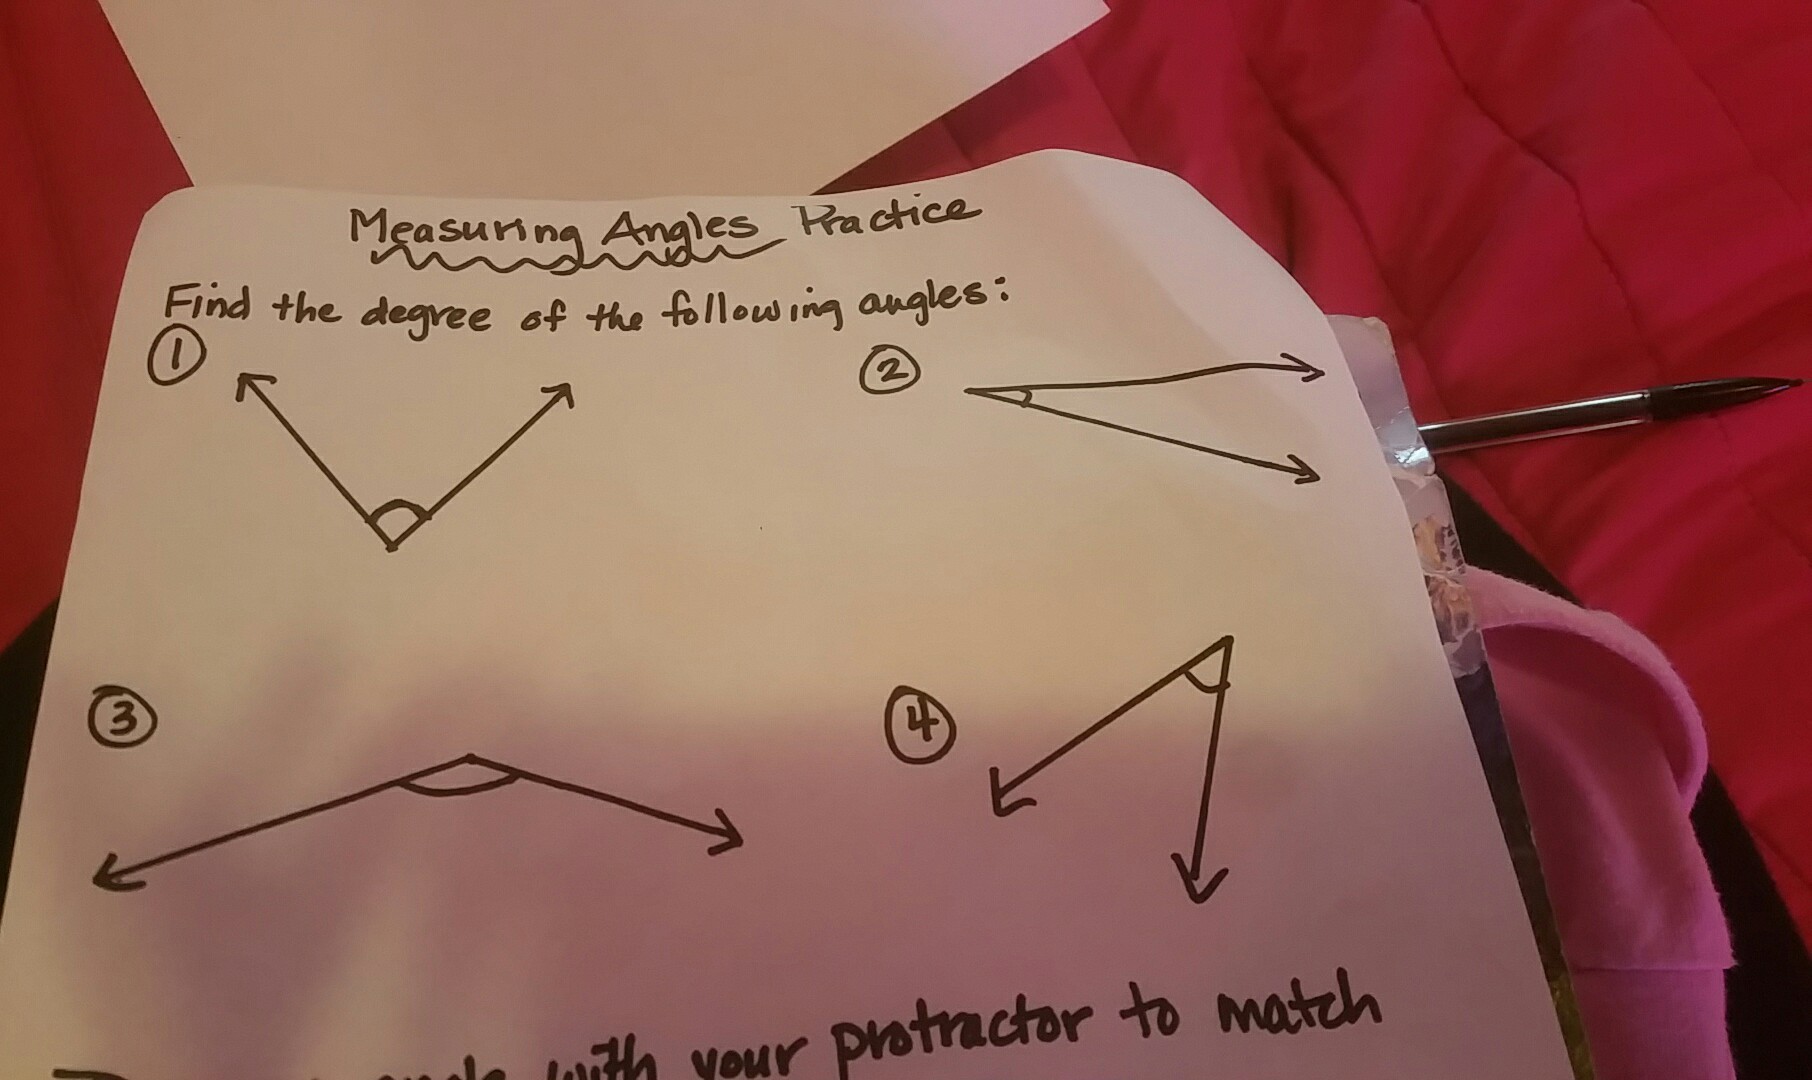 Measuring Angles Practice
Find the degree of the following angles:
1
2
3
4
with your protractor to match